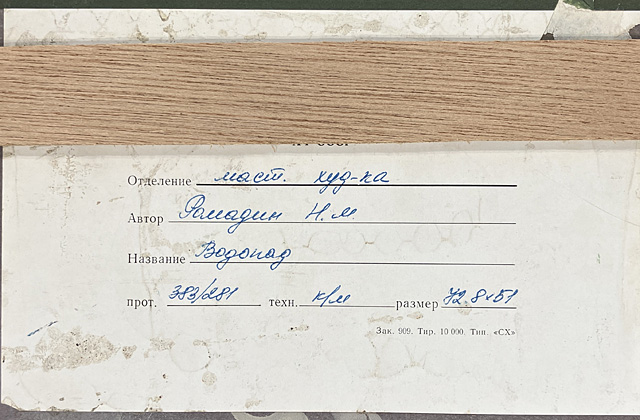 Отделение маст. худ-ка
Автор Ромадин Н.М.
Название Водопад
прот. 383/281 техн. к/м размер 72,8×51
Зак. 909. Тир. 10 000. Тип. «СХ»